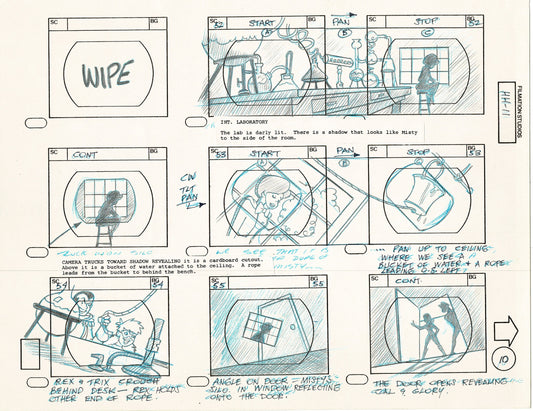 SC
BG
WIPE
SC 52
START
PAN
STOP
BG 52
A
B
C
INT. LABORATORY
The lab is darly lit. There is a shadow that looks like Misty
to the side of the room.
FILMATION STUDIOS
HH-11
SC
CONT
BG
SC 53
START
PAN
STOP
BG 53
A
B
C
TILT
PAN
TRUCK IN ON SILO
WE SEE THAT IT IS
MISTY...
... PAN UP TO CEILING
WHERE WE SEE A
BUCKET OF WATER & A ROPE
LEADING O.S. LEFT!
CAMERA TRUCKS TOWARD SHADOW REVEALING it is a cardboard cutout.
Above it is a bucket of water attached to the ceiling. A rope
leads from the bucket to behind the bench.
SC 54
BG 54
SC 55
BG 55
SC
CONT.
BG
REX & TRIX CROUCH
BEHIND DESK - REX HOLDS
OTHER END OF ROPE.
ANGLE ON DOOR - MISTY'S
SILO. IN WINDOW REFLECTING
ONTO THE DOOR.
THE DOOR OPENS REVEALING
CAL & GLORY.
10